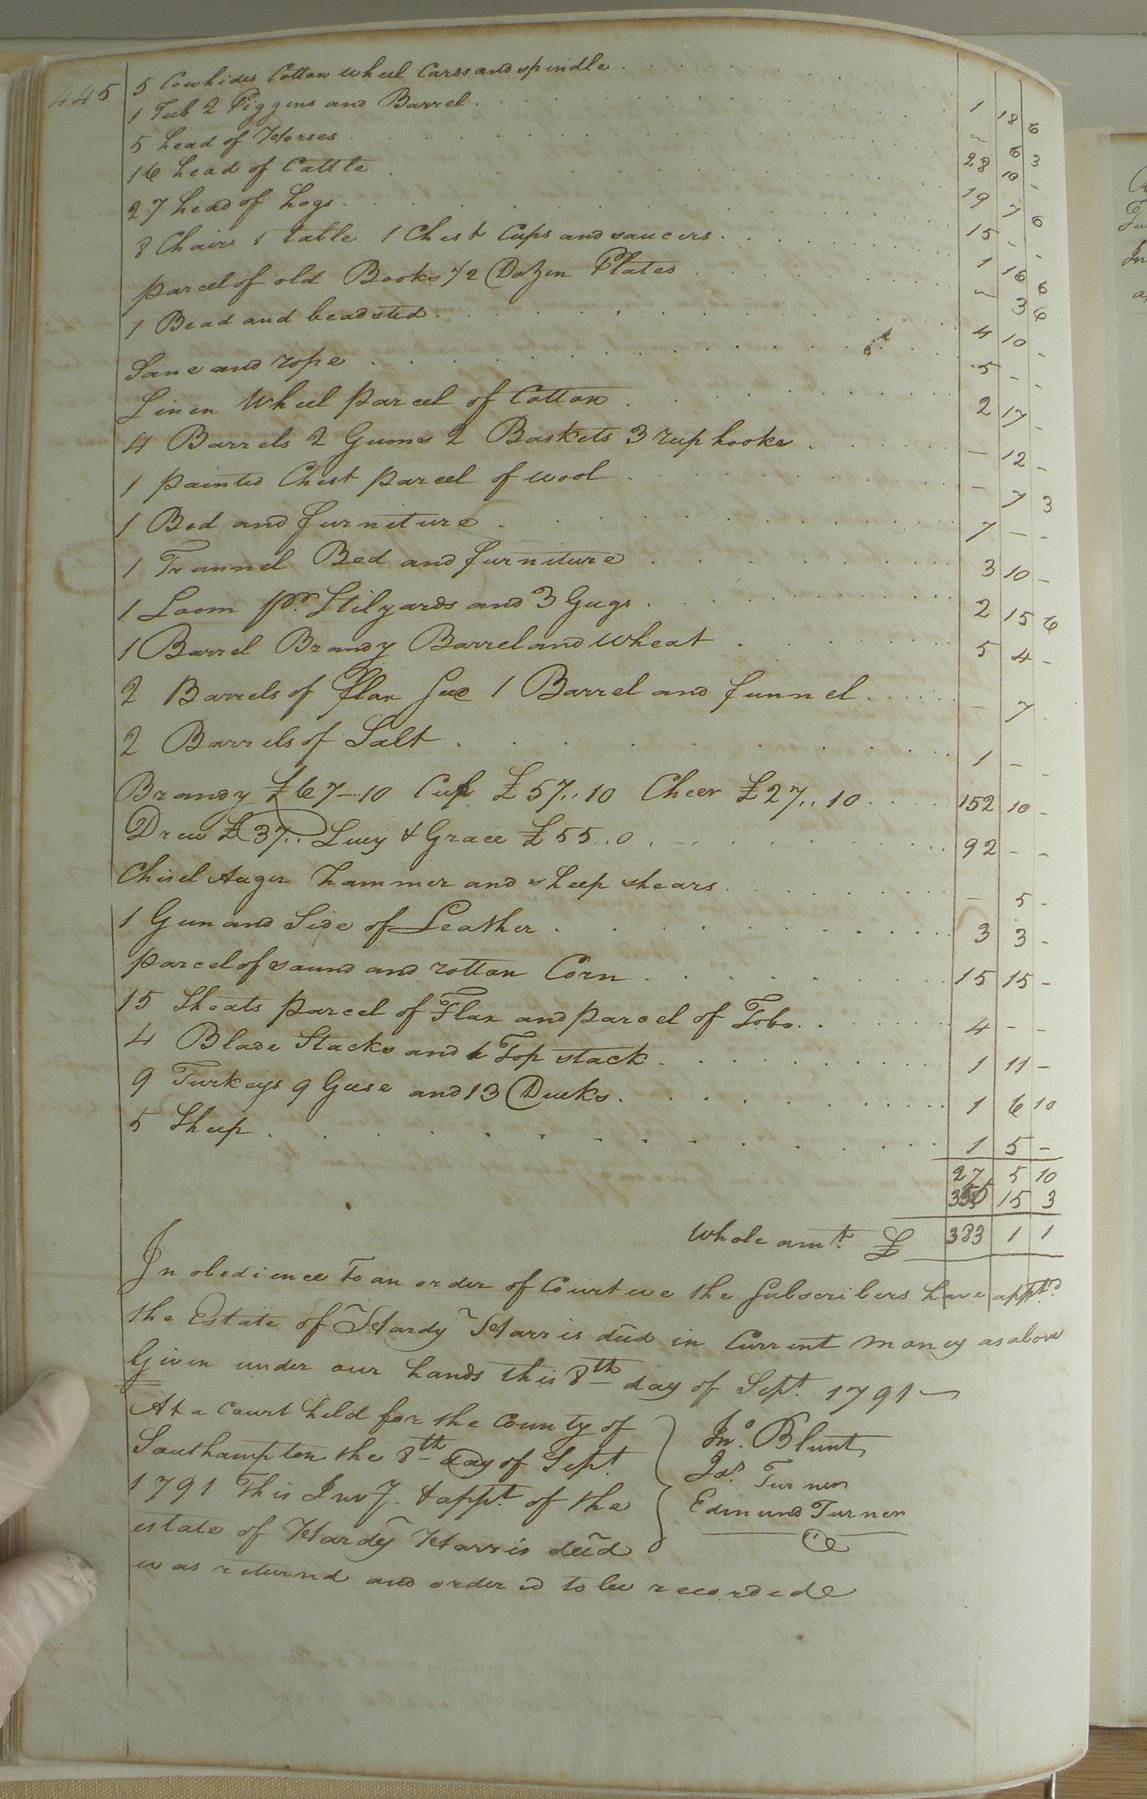 445 5 Cowhides Cotton wheel Cards and spindle 1 18 6
1 Tub 2 Piggins and Barrel - 6 3
5 head of Horses 28 10 -
16 head of Cattle 19 7 6
27 head of hogs 15 - -
8 Chairs 1 table 1 Chest Cups and saucers 1 16 6
parcel of old Books 1/2 Dozen Plates - 3 6
1 Bead and beadsted 4 10 -
Sane and rope 5 - -
Linen Wheel parcel of Cotton 2 17 -
4 Barrels 2 Gums 2 Baskets 3 reep hooks - 12 -
1 painted Chest parcel of wool - 7 3
1 Bed and furniture 7 - -
1 Trunnel Bed and furniture 3 10 -
1 Loom pr. Stilyards and 3 Gugs 2 15 6
1 Barrel Brandy Barrel and Wheat 5 4 -
2 Barrels of flax See 1 Barrel and funnel - 7
2 Barrels of Salt 1 - -
Brandy £67-10 £57..10 £27..10 152 10 -
Drew £37.. Lucy & Grace £55..0 92 - -
Chisel Auger hammer and sheep shears - 5 -
1 Gun and Side of Leather 3 3 -
parcel of sound and rotton Corn 15 15 -
15 Shoats parcel of Flax and parcel of Tobo. 4 - -
4 Blade Stacks and 1 Top stack 1 11 -
9 Turkeys 9 Geese and 13 Ducks 1 6 10
5 Sheep 1 5 -
27 5 10
355 15 3
Whole amt. £ 383 1 1
In obedience to an order of Court we the Subscribers have apptd
the Estate of Hardy Harris decd in Current money as above
Given under our hands this 8th day of Sept. 1791
At a Court held for the County of
Southampton the 8th Day of Sept.
1791 This Invy. & appt. of the
estate of Hardy Harris decd
was returnd and orderd to be recorded
Jno. Blunt
Jas. Turner
Edmund Turner